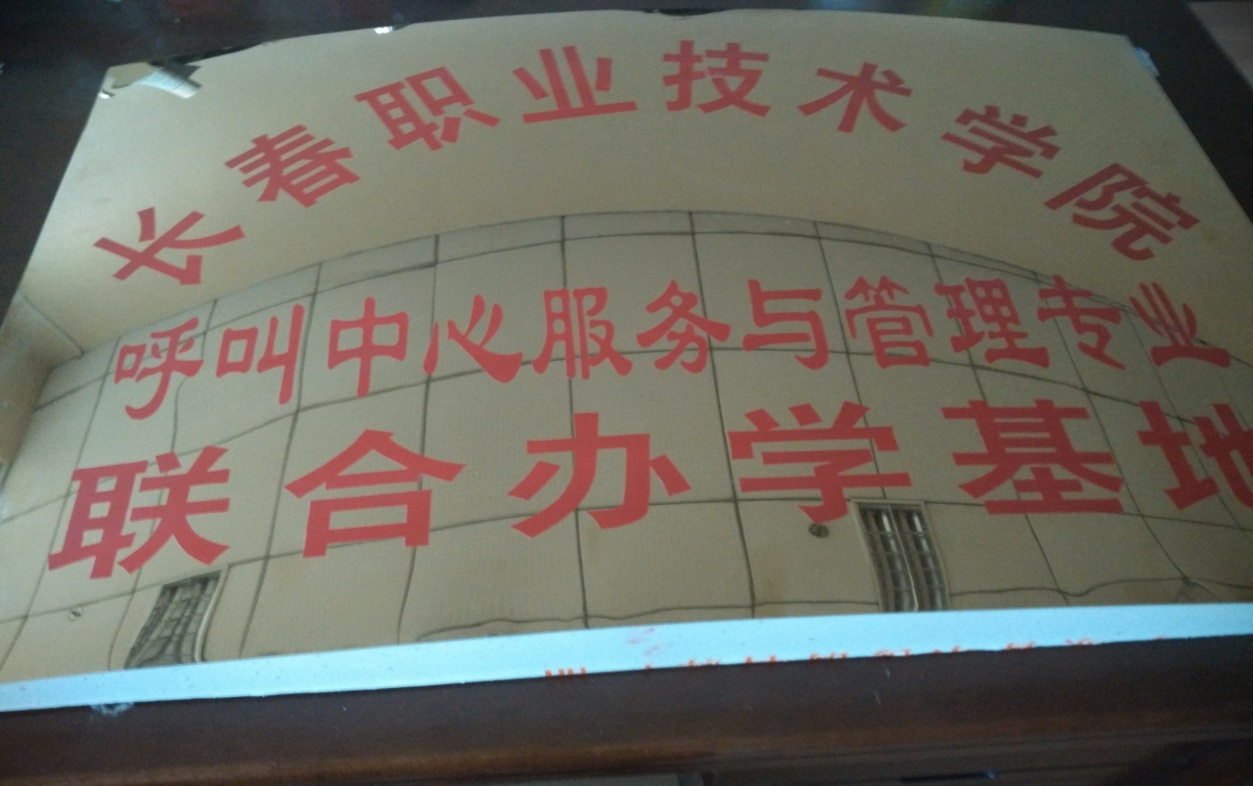 长春职业技术学院
呼叫中心服务与管理专业
联合办学基地